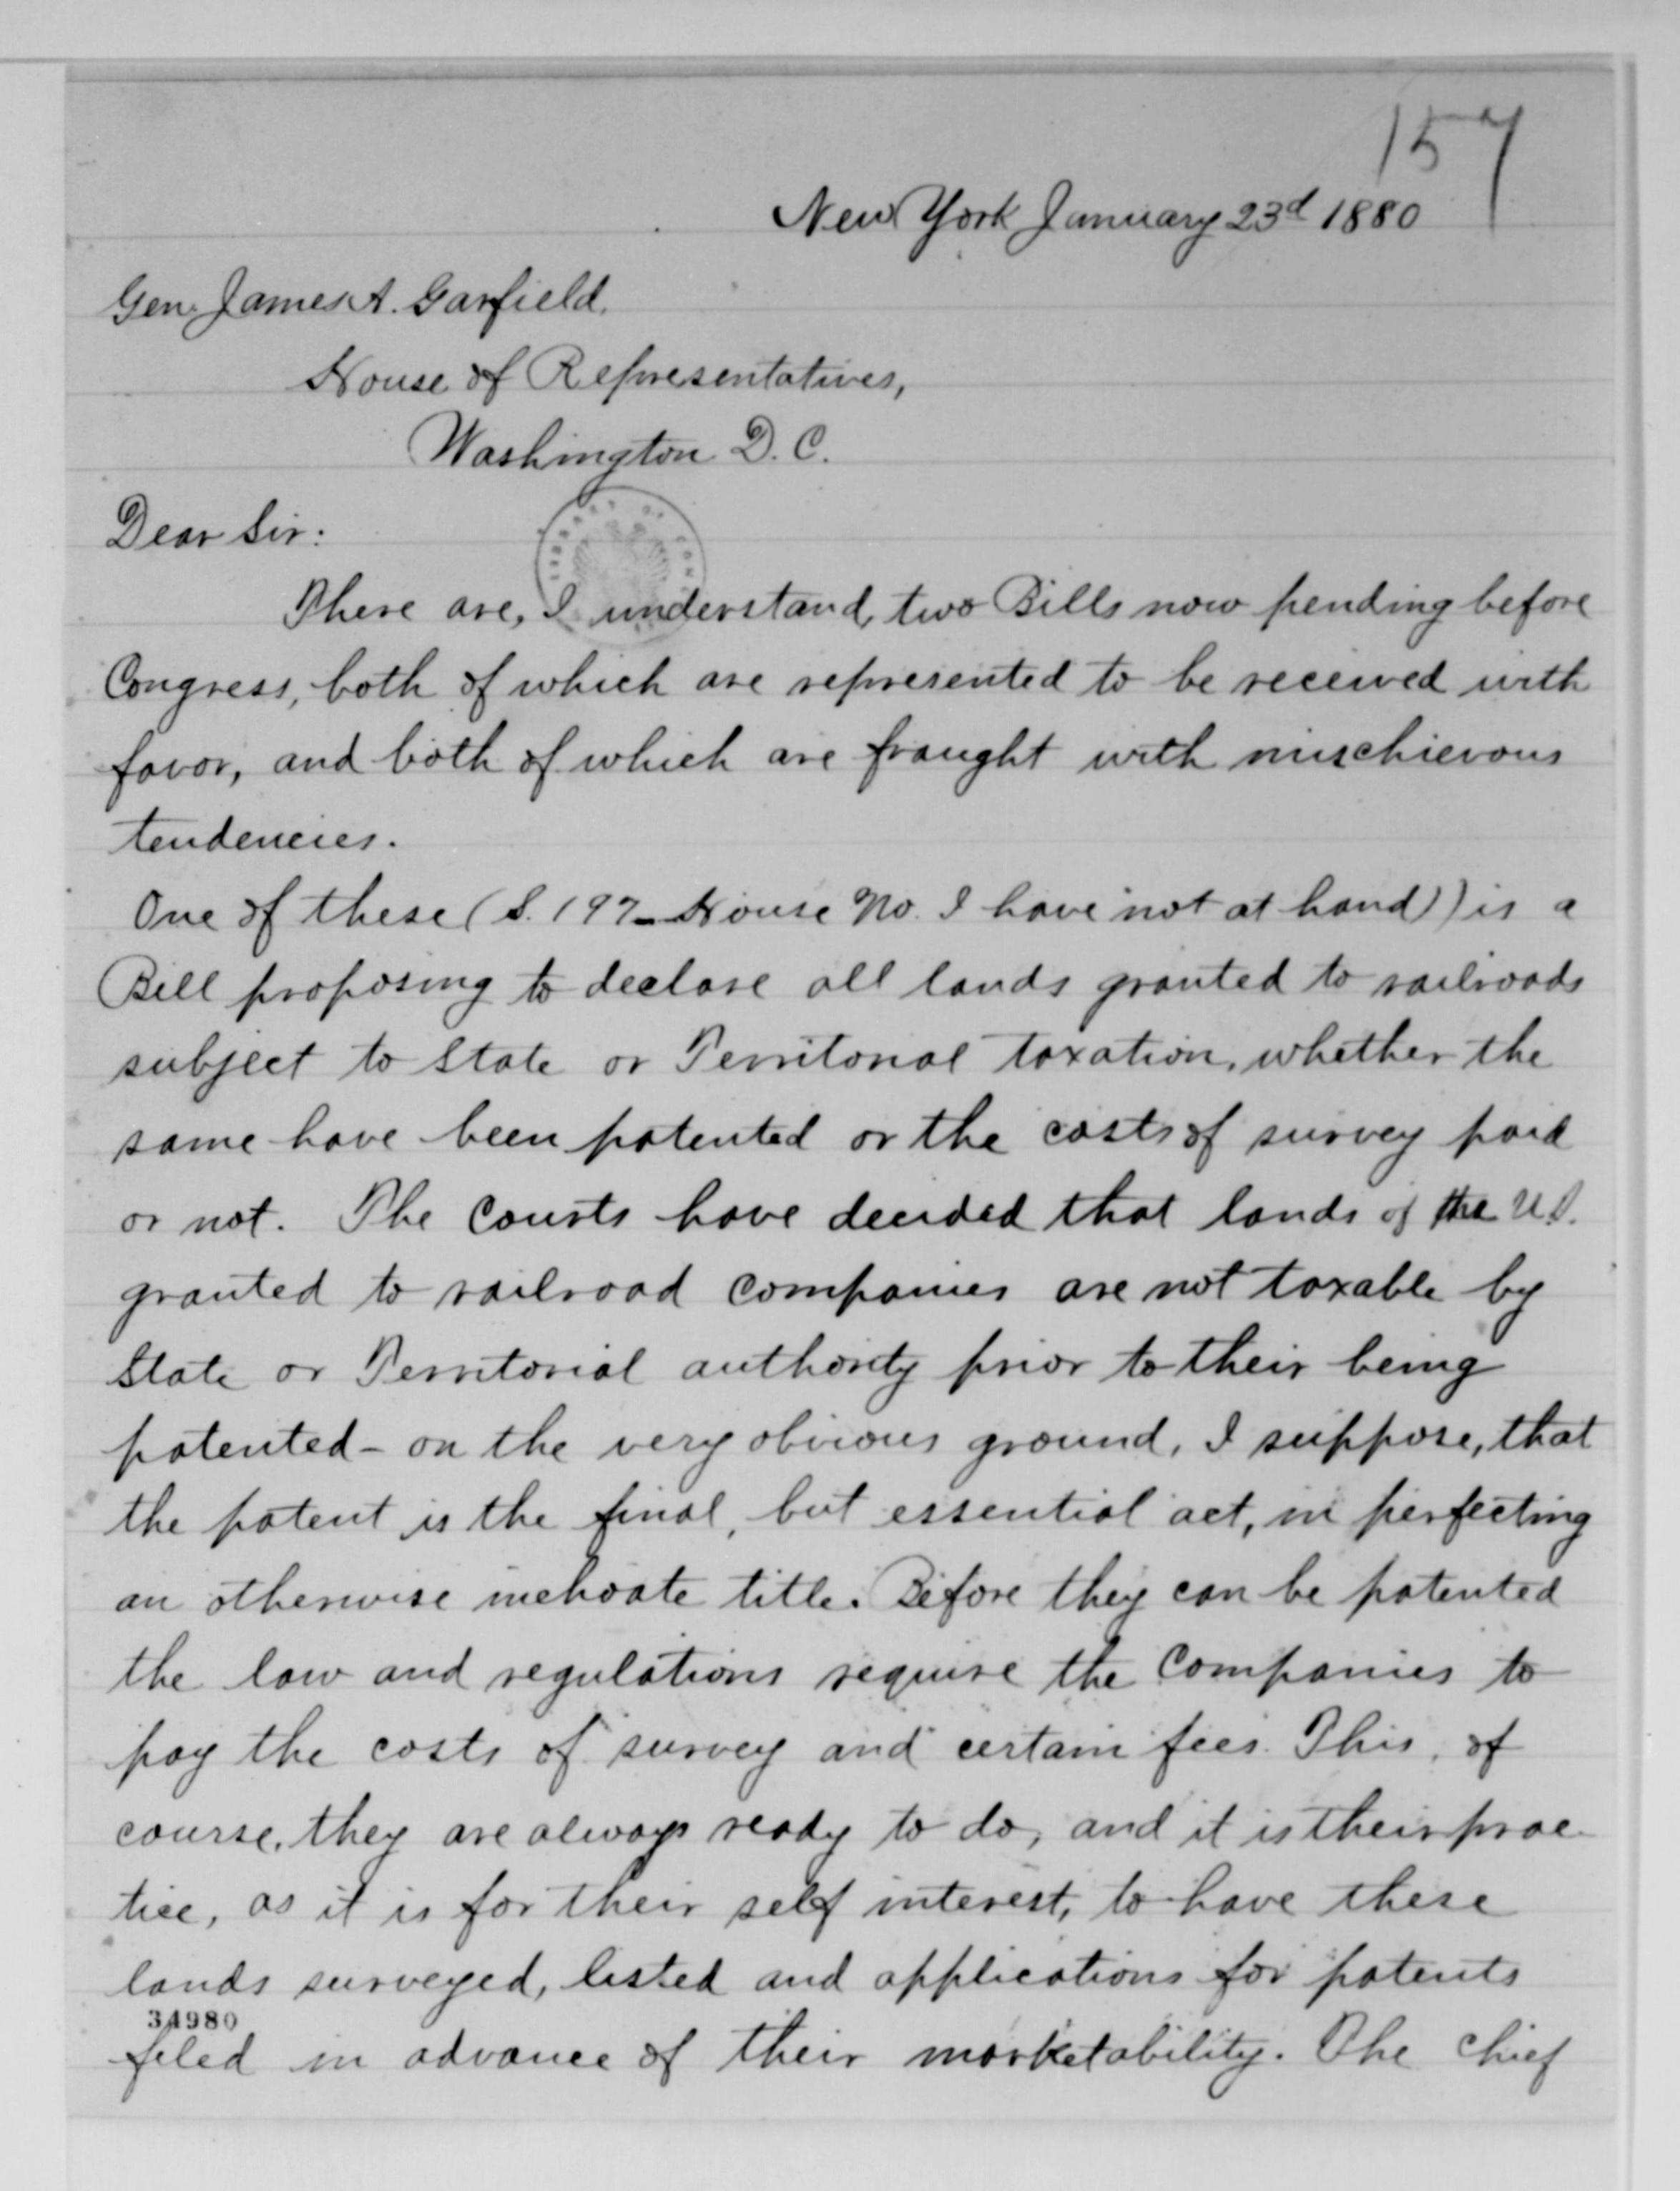 157
New York January 23d 1880
Gen. James A. Garfield.
House of Representatives,
Washington D. C.
Dear Sir:
There are, I understand, two Bills now pending before
Congress, both of which are represented to be received with
favor, and both of which are fraught with mischievous
tendencies.
One of these (S. 197 - House No. I have not at hand)) is a
Bill proposing to declare all lands granted to railroads
subject to State or Territorial taxation, whether the
same have been patented or the costs of survey paid
or not. The Courts have decided that lands of the U.S.
granted to railroad companies are not taxable by
State or Territorial authority prior to their being
patented - on the very obvious ground, I suppose, that
the patent is the final, but essential act, in perfecting
an otherwise inchoate title. Before they can be patented
the law and regulations require the Companies to
pay the costs of survey and certain fees. This, of
course, they are always ready to do, and it is their prac-
tice, as it is for their self interest, to have these
lands surveyed, listed and applications for patents
34980
filed in advance of their marketability. The chief